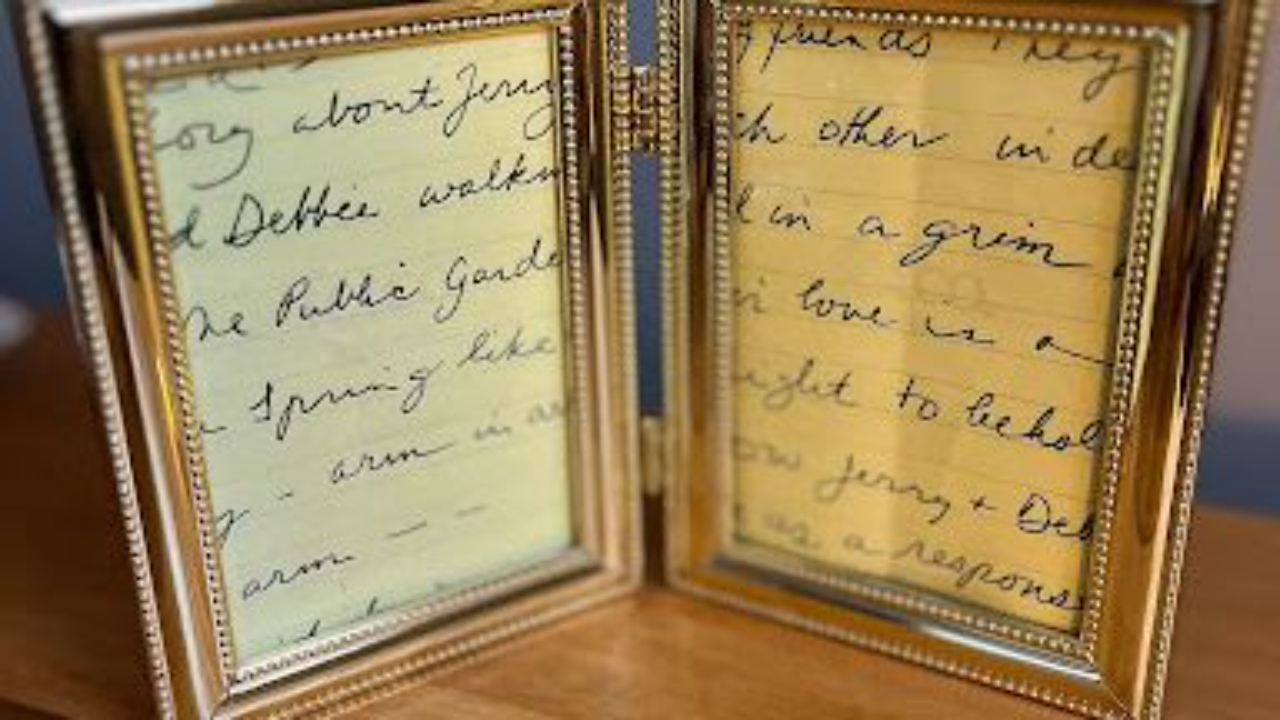 ory about Jerry
d Debbie walkin
he Public Garde
Spring like
y - arm in ar
arm — —
friends They
ch other in de
l in a grim
ir love is a
ight to behol
ow Jerry + Deb
as a respons